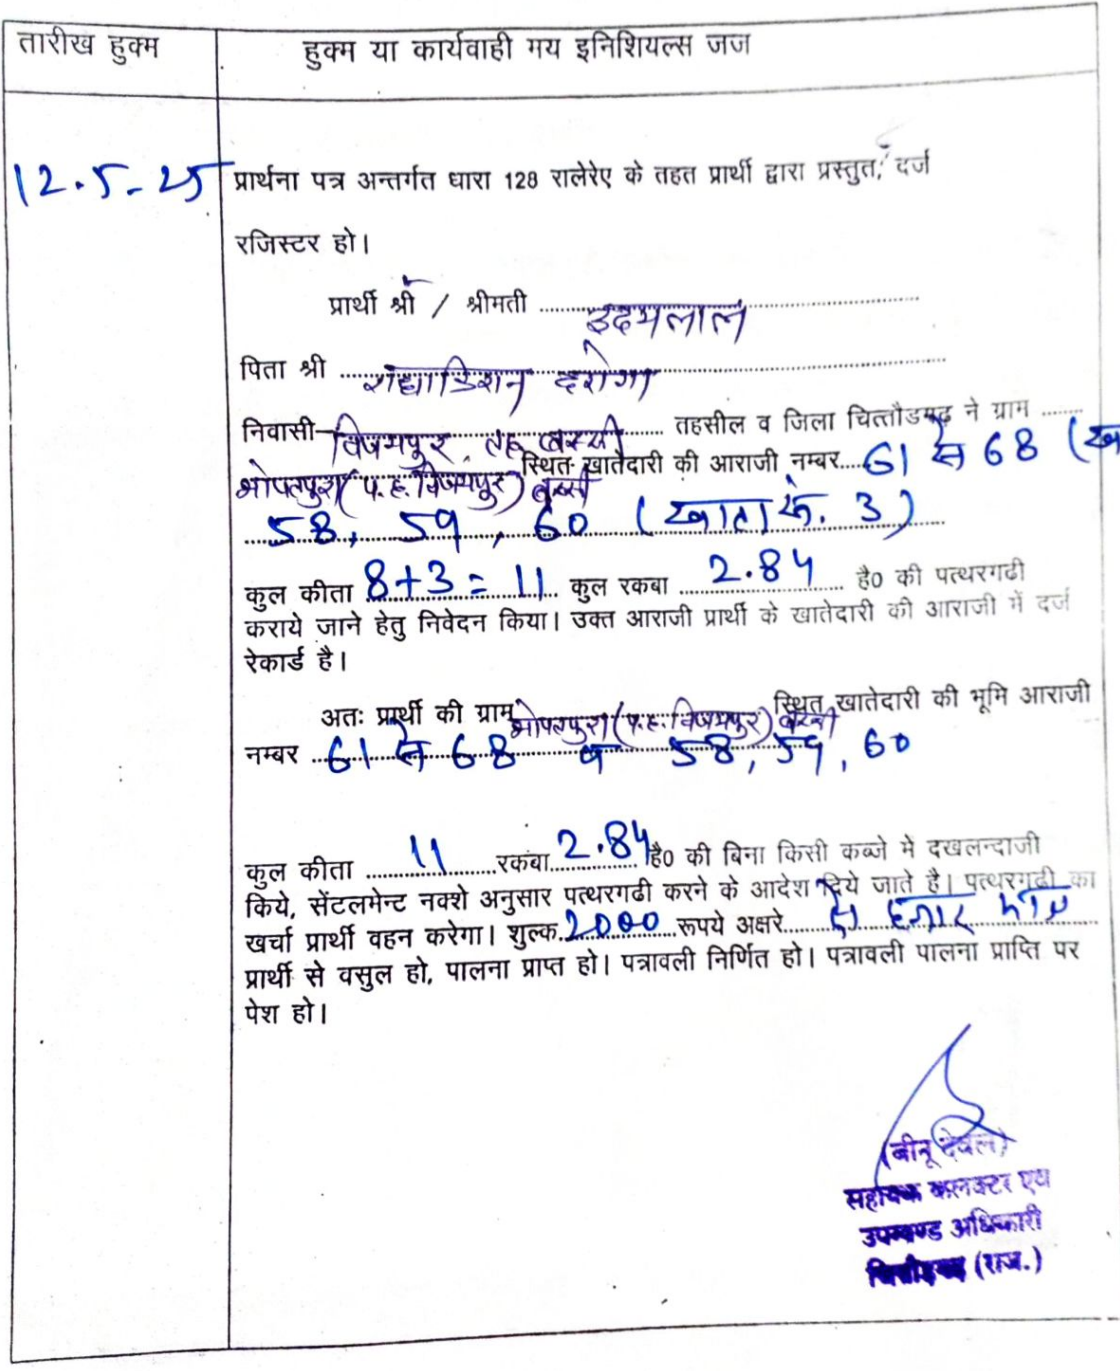 तारीख हुक्म
हुक्म या कार्यवाही मय इनिशियल्स जज
12.5-25
प्रार्थना पत्र अन्तर्गत धारा 128 रालेरेए के तहत प्रार्थी द्वारा प्रस्तुत, दर्ज
रजिस्टर हो।
प्रार्थी श्री / श्रीमती उदयलाल
पिता श्री राधाकिशन दरोगा
निवासी विजयपुर, तह. बस्सी तहसील व जिला चित्तौडगढ़ ने ग्राम
भोपतपुरा (प.ह. विजयपुर) बस्सी स्थित खातेदारी की आराजी नम्बर 61 से 68
58, 59, 60 (खाता क्र. 3)
कुल कीता 8+3 = 11 कुल रकबा 2.84 है0 की पत्थरगढी
कराये जाने हेतु निवेदन किया। उक्त आराजी प्रार्थी के खातेदारी की आराजी में दर्ज
रेकार्ड है।
अतः प्रार्थी की ग्राम भोपतपुरा (प.ह. विजयपुर) बस्सी स्थित खातेदारी की भूमि आराजी
नम्बर 61 से 68 व 58, 59, 60
कुल कीता 11 रकबा 2.84 है0 की बिना किसी कब्जे में दखलन्दाजी
किये, सेंटलमेन्ट नक्शे अनुसार पत्थरगढी करने के आदेश दिये जाते है। पत्थरगढी का
खर्चा प्रार्थी वहन करेगा। शुल्क 2000 रूपये अक्षरे दो हजार मात्र
प्रार्थी से वसुल हो, पालना प्राप्त हो। पत्रावली निर्णित हो। पत्रावली पालना प्राप्ति पर
पेश हो।
(बीनू देवल)
सहायक कलक्टर एवं
उपखण्ड अधिकारी
चित्तौड़गढ़ (राज.)